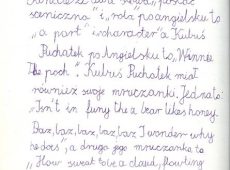 sceniczna" i „rola po angielsku to
„a part" i „character" a Kubuś
Puchatek po Angielsku to, Winnee
the pooh". Kubuś Puchatek miał
również swoje mruczanki. Jedna to:
„Isn't in funy the a bear likes honey.
Baz, baz, baz, baz, baz I wonder why
he does", a druga jego mruczanka to
„How sweat to be a claud, flowting